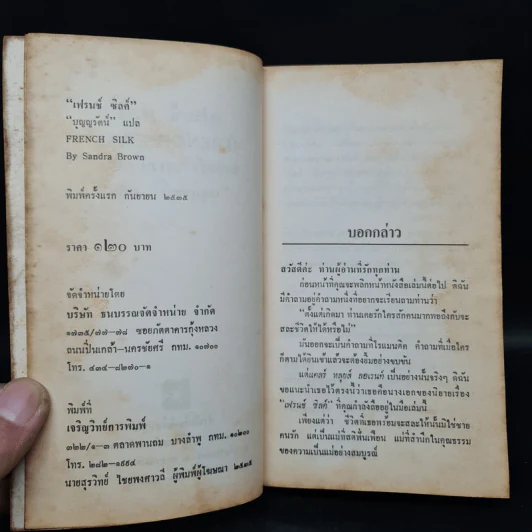 "เฟรนช์ ซิลค์"
"บุญญรัตน์" แปล
FRENCH SILK
By Sandra Brown
พิมพ์ครั้งแรก กันยายน ๒๕๓๕
ราคา ๑๒๐ บาท
จัดจำหน่ายโดย
บริษัท ธนบรรณจัดจำหน่าย จำกัด
๑๗๓๕/๗๗-๗๘ ซอยภัตตาคารกุ้งหลวง
ถนนปิ่นเกล้า-นครชัยศรี กทม. ๑๐๗๐๐
โทร. ๔๓๔-๘๒๗๐-๑
พิมพ์ที่
เจริญวิทย์การพิมพ์
๓๒๒/๑-๓ ตลาดพานถม บางลำพู กทม. ๑๐๒๐๐
โทร. ๒๘๒-๑๙๙๔
นายสุรวิทย์ ไชยพงศาวลี ผู้พิมพ์ผู้โฆษณา ๒๕๓๕
บอกกล่าว
สวัสดีค่ะ ท่านผู้อ่านที่รักทุกท่าน
ก่อนหน้าที่คุณจะพลิกหน้าหนังสือเล่มนี้ต่อไป ดิฉัน
มีคำถามอยู่คำถามหนึ่งที่อยากจะเรียนถามท่านว่า
"ตั้งแต่เกิดมา ท่านเคยรักใครสักคนมากพอถึงกับจะ
สละชีวิตให้ได้หรือไม่"
มันออกจะเป็นคำถามที่โรแมนติค คำถามที่เมื่อใคร
ก็ตามได้ยินเข้าแล้วจะต้องยิ้มอย่างขบขัน
แต่แคลร์ หลุยส์ ลอเรนท์ เป็นอย่างนั้นจริงๆ ดิฉัน
ขอแนะนำเธอไว้ตรงนี้ว่าเธอคือนางเอกของนิยายเรื่อง
"เฟรนช์ ซิลค์" ที่คุณกำลังถืออยู่ในมือเล่มนี้
เพียงแต่ว่า ชีวิตที่เธอพร้อมจะสละให้นั้นมิใช่ชาย
คนรัก แต่เป็นแม่ที่สติฟั่นเฟือน แม่ที่สำนึกในคุณธรรม
ของความเป็นแม่อย่างสมบูรณ์